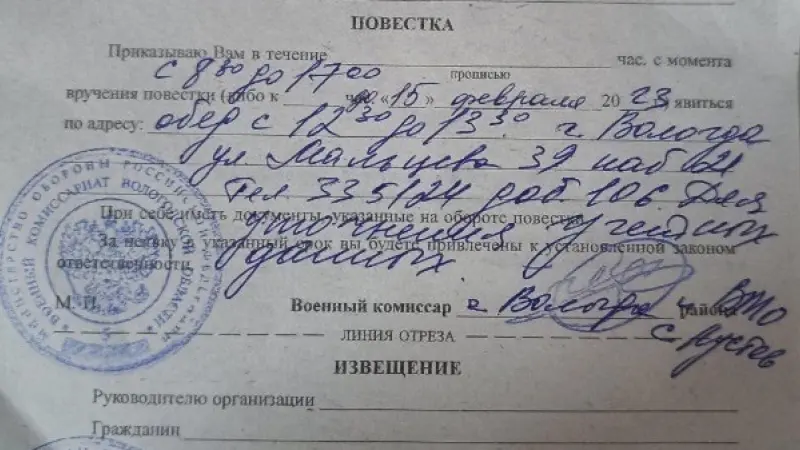 ПОВЕСТКА
Приказываю Вам в течение час. с момента
с 8 30 до 17 00
прописью
вручения повестки (либо к час. до «15» февраля 20 23 явиться
по адресу: обед с 12 30 до 13 30 г. Вологда
ул Мальцева 39 каб 21
Тел 335124 доб 106 Для
При себе иметь документы, указанные на обороте повестки.
уточнения учетных
За неявку в указанный срок вы будете привлечены к установленной законом
ответственности. данных.
М. П. Военный комиссар г. Вологды и района
ЛИНИЯ ОТРЕЗА
ИЗВЕЩЕНИЕ
Руководителю организации
Гражданин
МИНИСТЕРСТВО ОБОРОНЫ РОССИЙСКОЙ
ВОЕННЫЙ КОМИССАРИАТ ВОЛОГОДСКОЙ ОБЛАСТИ